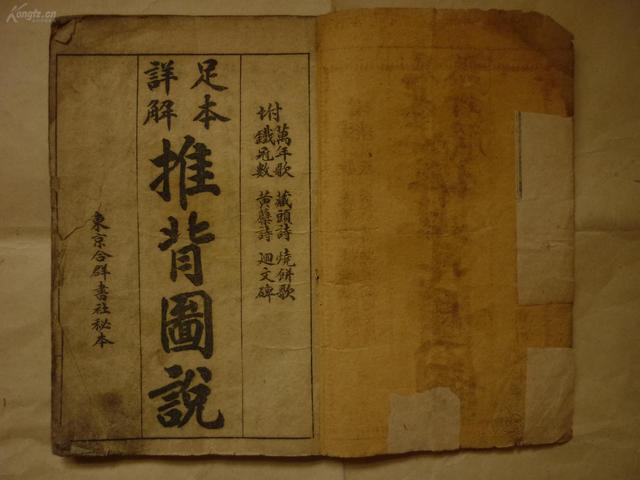 Kongfz.cn
坿
萬年歌 藏頭詩 燒餅歌
鐵冠數 黃蘗詩 迴文碑
足本
詳解
推背圖說
東京合群書社秘本